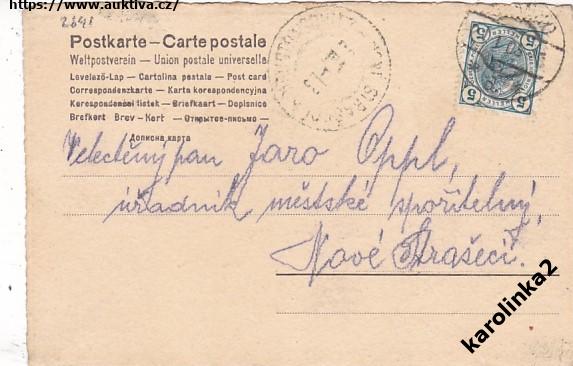 https://www.auktiva.cz/
2641
Postkarte – Carte postale
Weltpostverein – Union postale universelle
Levelező-Lap – Cartolina postale – Post card
Correspondenzkarte – Karta korespondencyjna
Korespondenční listek – Briefkaart – Dopisnice
Brefkort Brev – Kort – Открытое-письмо –
Дописна карта
5 5
5 5
Velectěný pan Jaro Oppl,
úřadník městské spořitelny,
Nové Strašecí.
karolinka2